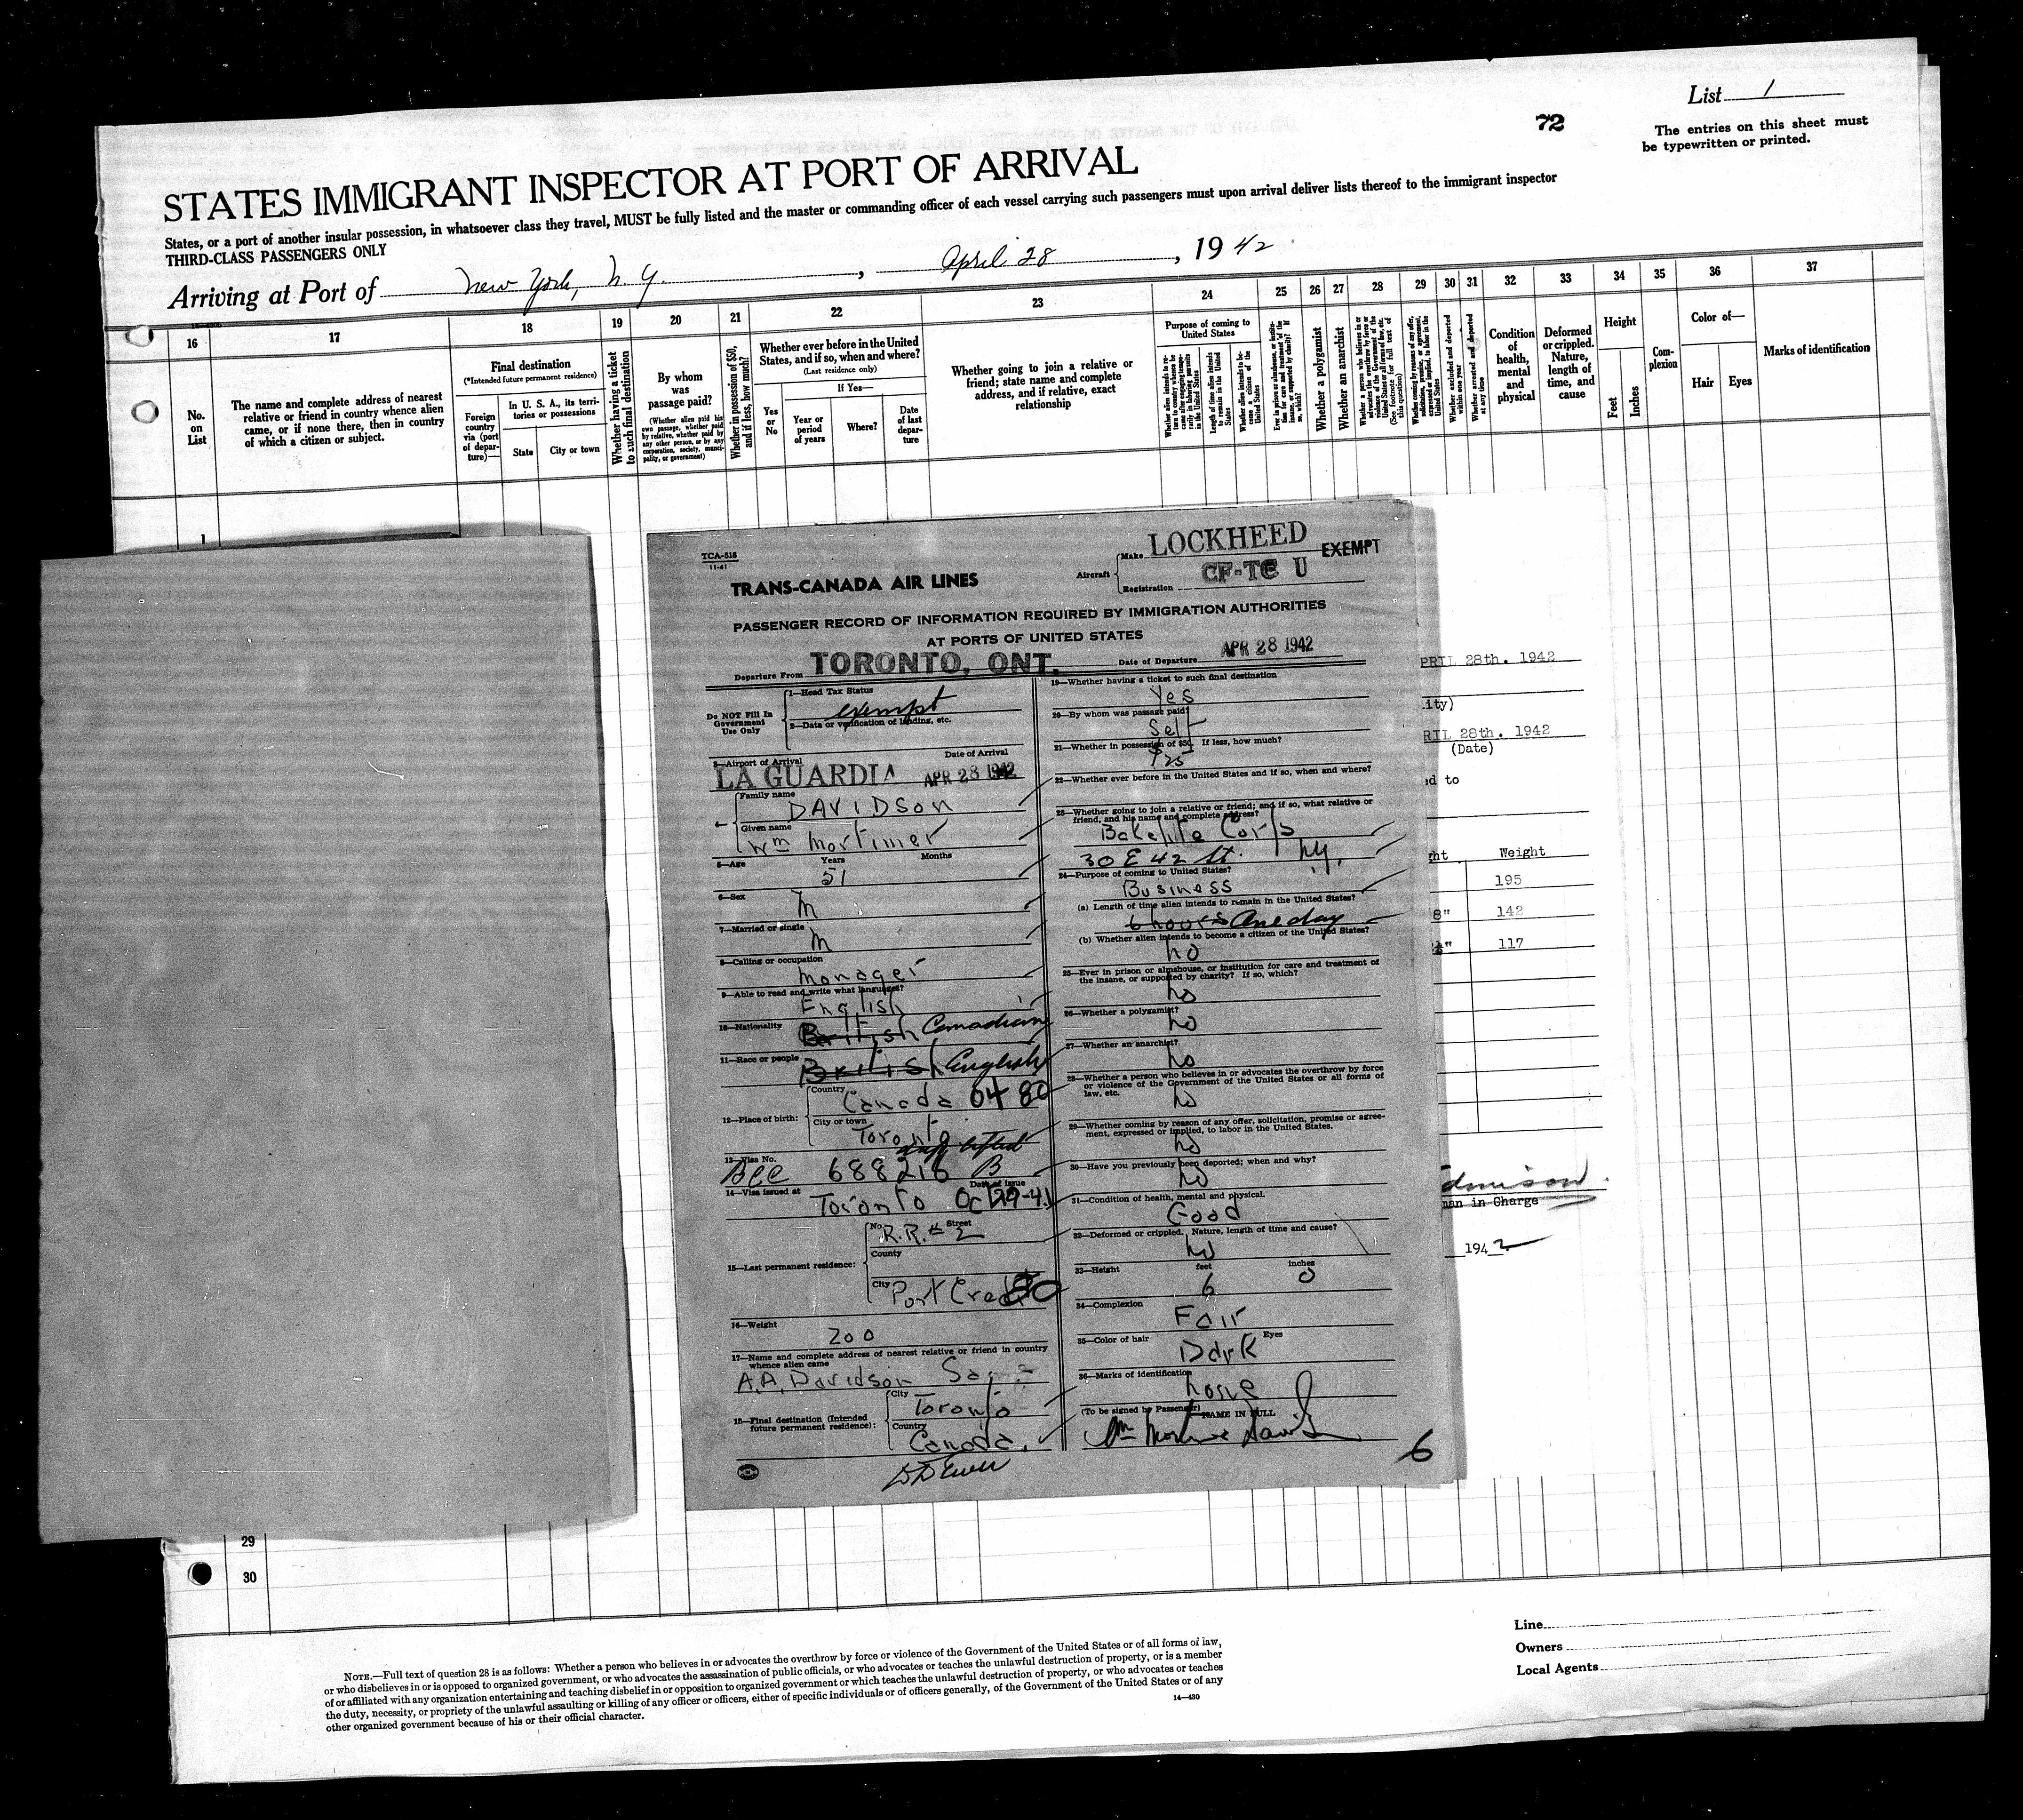 List 1
72
The entries on this sheet must
be typewritten or printed.
STATES IMMIGRANT INSPECTOR AT PORT OF ARRIVAL
States, or a port of another insular possession, in whatsoever class they travel, MUST be fully listed and the master or commanding officer of each vessel carrying such passengers must upon arrival deliver lists thereof to the immigrant inspector
THIRD-CLASS PASSENGERS ONLY
Arriving at Port of New York, N. Y. , April 28 , 19 42
16 17 18 19 20 21 22 23 24 25 26 27 28 29 30 31 32 33 34 35 36 37
No.
on
List
The name and complete address of nearest
relative or friend in country whence alien
came, or if none there, then in country
of which a citizen or subject.
Final destination
(*Intended future permanent residence)
Foreign
country
via (port
of depar-
ture)—
In U. S. A., its terri-
tories or possessions
State
City or town
Whether having a ticket
to such final destination
By whom
was
passage paid?
(Whether alien paid his
own passage, whether paid
by relative, whether paid by
any other person, or by any
corporation, society, munici-
pality, or government)
Whether in possession of $50,
and if less, how much?
Whether ever before in the United
States, and if so, when and where?
(Last residence only)
If Yes—
Yes
or
No
Year or
period
of years
Where?
Date
of last
depar-
ture
Whether going to join a relative or
friend; state name and complete
address, and if relative, exact
relationship
Purpose of coming to
United States
Whether alien intends to re-
turn to country whence he
came after engaging tempo-
rarily in laboring pursuits
in the United States
Length of time alien intends
to remain in the United
States
Whether alien intends to be-
come a citizen of the
United States
Ever in prison or almshouse, or institu-
tion for care and treatment of the
insane, or supported by charity? If
so, which?
Whether a polygamist
Whether an anarchist
Whether a person who believes in or
advocates the overthrow by force or
violence of the Government of the
United States or all forms of law, etc.
(See footnote for full text of
this question)
Whether coming by reason of any offer,
solicitation, promise, or agreement,
expressed or implied, to labor in the
United States
Whether excluded and deported
within one year
Whether arrested and deported
at any time
Condition
of
health,
mental
and
physical
Deformed
or crippled.
Nature,
length of
time, and
cause
Height
Feet
Inches
Com-
plexion
Color of—
Hair
Eyes
Marks of identification
1
TCA-518
11-41
TRANS-CANADA AIR LINES
Aircraft
Make LOCKHEED
EXEMPT
Registration CF-TC U
PASSENGER RECORD OF INFORMATION REQUIRED BY IMMIGRATION AUTHORITIES
AT PORTS OF UNITED STATES
Departure From TORONTO, ONT.
Date of Departure APR 28 1942
Do NOT Fill In
Government
Use Only
1—Head Tax Status
exempt
2—Data or verification of landing, etc.
3—Airport of Arrival
Date of Arrival
LA GUARDIA APR 28 1942
4—
Family name
DAVIDSON
Given name
Wm Mortimer
5—Age
Years
Months
51
6—Sex
M
7—Married or single
M
8—Calling or occupation
Manager
9—Able to read and write what languages?
English
10—Nationality
British Canadian
11—Race or people
British English
12—Place of birth:
Country
Canada 04 80
City or town
Toronto
13—Visa No.
Bcc 688216 B
14—Visa issued at
Date of issue
Toronto Oct 29-41
15—Last permanent residence:
No. Street
R.R. # 2
County
City
Port Credit
16—Weight
200
17—Name and complete address of nearest relative or friend in country
whence alien came
A.A. Davidson Same
18—Final destination (Intended
future permanent residence):
City
Toronto
Country
Canada
19—Whether having a ticket to such final destination
Yes
20—By whom was passage paid?
Self
21—Whether in possession of $50. If less, how much?
$25
22—Whether ever before in the United States and if so, when and where?
23—Whether going to join a relative or friend; and if so, what relative or
friend, and his name and complete address?
Bakelite Corp
30 E 42 St. N.Y.
24—Purpose of coming to United States?
Business
(a) Length of time alien intends to remain in the United States?
6 hours One day
(b) Whether alien intends to become a citizen of the United States?
no
25—Ever in prison or almshouse, or institution for care and treatment of
the insane, or supported by charity? If so, which?
no
26—Whether a polygamist?
no
27—Whether an anarchist?
no
28—Whether a person who believes in or advocates the overthrow by force
or violence of the Government of the United States or all forms of
law, etc.
no
29—Whether coming by reason of any offer, solicitation, promise or agree-
ment, expressed or implied, to labor in the United States.
no
30—Have you previously been deported; when and why?
no
31—Condition of health, mental and physical.
Good
32—Deformed or crippled. Nature, length of time and cause?
no
33—Height
feet
inches
6 0
34—Complexion
Fair
35—Color of hair
Eyes
Dark
36—Marks of identification
none
(To be signed by Passenger)
NAME IN FULL
Wm Mortimer Davidson
6
PRIL 28th. 1942
ity)
RIL 28th. 1942
(Date)
ed to
ght Weight
195
8" 142
117
dmison
man in Charge
1942
29
30
Line
Owners
Local Agents
NOTE.—Full text of question 28 is as follows: Whether a person who believes in or advocates the overthrow by force or violence of the Government of the United States or of all forms of law,
or who disbelieves in or is opposed to organized government, or who advocates the assassination of public officials, or who advocates or teaches the unlawful destruction of property, or is a member
of or affiliated with any organization entertaining and teaching disbelief in or opposition to organized government or which teaches the unlawful destruction of property, or who advocates or teaches
the duty, necessity, or propriety of the unlawful assaulting or killing of any officer or officers, either of specific individuals or of officers generally, of the Government of the United States or of any
other organized government because of his or their official character.
14—430